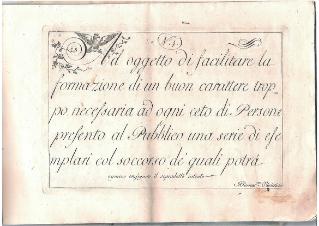 N. 1.
Ad oggetto di facilitare la
formazione di un buon carattere trop-
po necessaria ad ogni ceto di Persone
presento al Pubblico una serie di ese
mplari col soccorso de' quali potrà